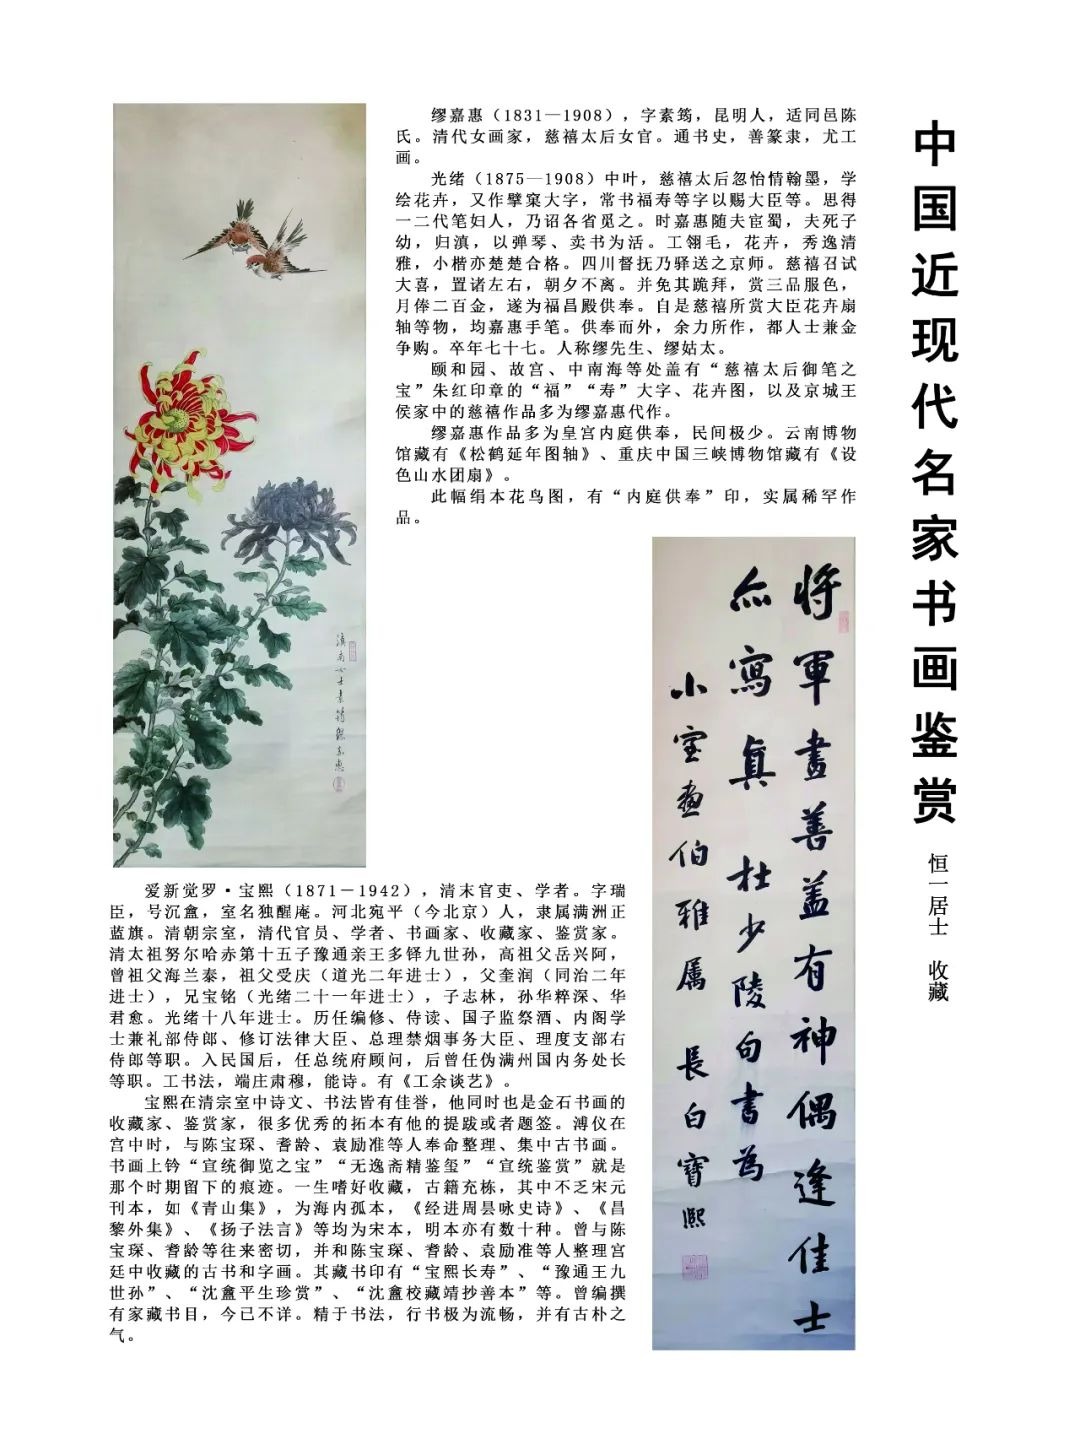 中国近现代名家书画鉴赏
恒一居士　收藏
缪嘉惠（1831—1908），字素筠，昆明人，适同邑陈
氏。清代女画家，慈禧太后女官。通书史，善篆隶，尤工
画。
光绪（1875—1908）中叶，慈禧太后忽怡情翰墨，学
绘花卉，又作擘窠大字，常书福寿等字以赐大臣等。思得
一二代笔妇人，乃诏各省觅之。时嘉惠随夫宦蜀，夫死子
幼，归滇，以弹琴、卖书为活。工翎毛，花卉，秀逸清
雅，小楷亦楚楚合格。四川督抚乃驿送之京师。慈禧召试
大喜，置诸左右，朝夕不离。并免其跪拜，赏三品服色，
月俸二百金，遂为福昌殿供奉。自是慈禧所赏大臣花卉扇
轴等物，均嘉惠手笔。供奉而外，余力所作，都人士兼金
争购。卒年七十七。人称缪先生、缪姑太。
颐和园、故宫、中南海等处盖有“慈禧太后御笔之
宝”朱红印章的“福”“寿”大字、花卉图，以及京城王
侯家中的慈禧作品多为缪嘉惠代作。
缪嘉惠作品多为皇宫内庭供奉，民间极少。云南博物
馆藏有《松鹤延年图轴》、重庆中国三峡博物馆藏有《设
色山水团扇》。
此幅绢本花鸟图，有“内庭供奉”印，实属稀罕作
品。
滇南女士素筠缪嘉惠
將軍畫善蓋有神偶逢佳士
亦寫真　杜少陵句書為
小室畫伯雅属　長白寶熙
爱新觉罗·宝熙（1871－1942），清末官吏、学者。字瑞
臣，号沉盦，室名独醒庵。河北宛平（今北京）人，隶属满洲正
蓝旗。清朝宗室，清代官员、学者、书画家、收藏家、鉴赏家。
清太祖努尔哈赤第十五子豫通亲王多铎九世孙，高祖父岳兴阿，
曾祖父海兰泰，祖父受庆（道光二年进士），父奎润（同治二年
进士），兄宝铭（光绪二十一年进士），子志林，孙华粹深、华
君愈。光绪十八年进士。历任编修、侍读、国子监祭酒、内阁学
士兼礼部侍郎、修订法律大臣、总理禁烟事务大臣、理度支部右
侍郎等职。入民国后，任总统府顾问，后曾任伪满州国内务处长
等职。工书法，端庄肃穆，能诗。有《工余谈艺》。
宝熙在清宗室中诗文、书法皆有佳誉，他同时也是金石书画的
收藏家、鉴赏家，很多优秀的拓本有他的提跋或者题签。溥仪在
宫中时，与陈宝琛、耆龄、袁励准等人奉命整理、集中古书画。
书画上钤“宣统御览之宝”“无逸斋精鉴玺”“宣统鉴赏”就是
那个时期留下的痕迹。一生嗜好收藏，古籍充栋，其中不乏宋元
刊本，如《青山集》，为海内孤本，《经进周昙咏史诗》、《昌
黎外集》、《扬子法言》等均为宋本，明本亦有数十种。曾与陈
宝琛、耆龄等往来密切，并和陈宝琛、耆龄、袁励准等人整理宫
廷中收藏的古书和字画。其藏书印有“宝熙长寿”、“豫通王九
世孙”、“沈盦平生珍赏”、“沈盦校藏靖抄善本”等。曾编撰
有家藏书目，今已不详。精于书法，行书极为流畅，并有古朴之
气。